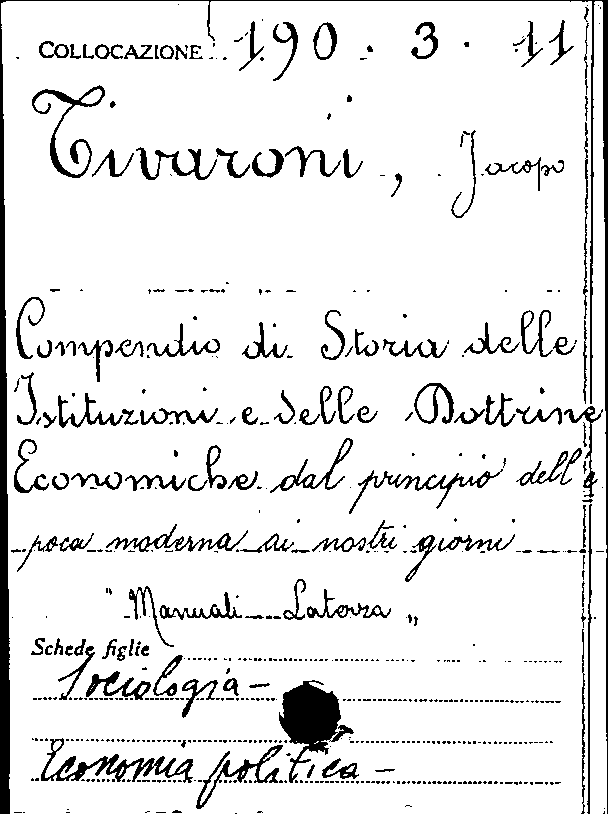 COLLOCAZIONE 190. 3. 11
Tivaroni, Jacopo
Compendio di Storia delle
Istituzioni e delle Dottrine
Economiche dal principio dell'e
poca moderna ai nostri giorni
"Manuali Laterza"
Schede figlie
Sociologia -
Economia politica -